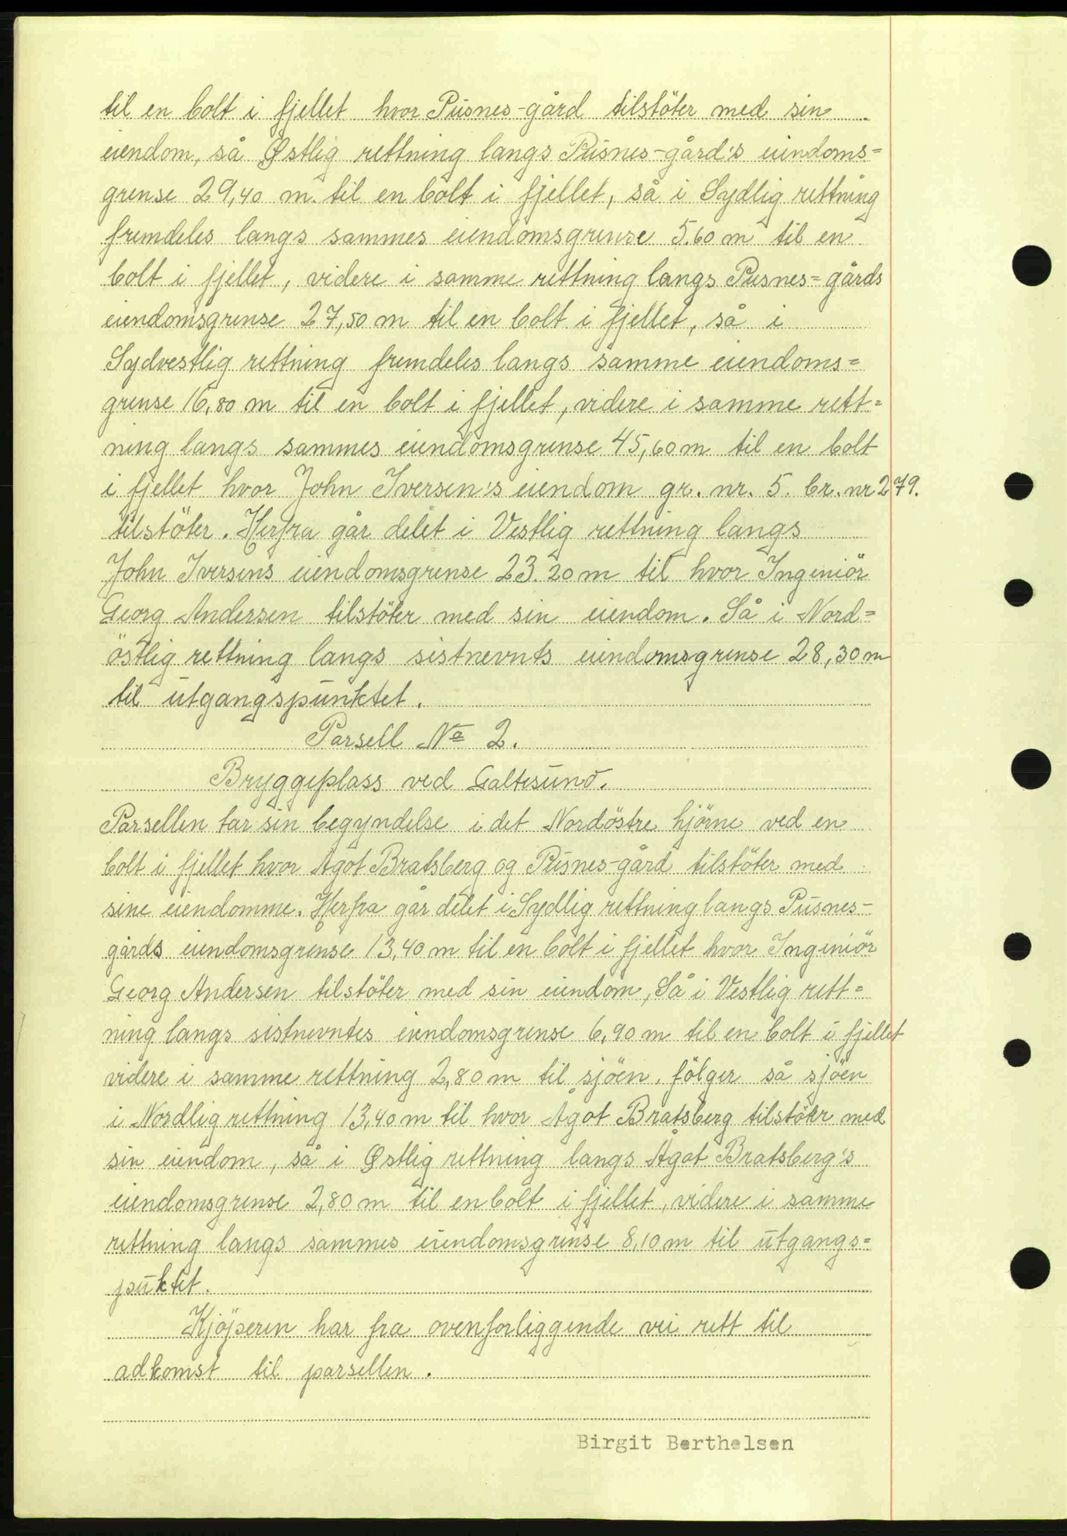 til en bolt i fjellet hvor Pusnes-gård tilstöter med sin
eiendom, så Østlig rettning langs Pusnes-gård's eiendoms=
grense 29,40 m. til en bolt i fjellet, så i Sydlig rettning
fremdeles langs sammes eiendomsgrense 5.60 m til en
bolt i fjellet, videre i samme rettning langs Pusnes=gårds
eiendomsgrense 27,50 m til en bolt i fjellet, så i
Sydvestlig rettning fremdeles langs samme eiendoms=
grense 16,80 m til en bolt i fjellet, videre i samme rett=
ning langs sammes eiendomsgrense 45,60 m til en bolt
i fjellet hvor John Iversen's eiendom gr. nr. 5. br. nr 279.
tilstöter. Herfra går delet i Vestlig rettning langs
John Iversens eiendomsgrense 23.20 m til hvor Ingeniör
Georg Andersen tilstöter med sin eiendom. Så i Nord=
östlig rettning langs sistnevnts eiendomsgrense 28,30 m
til utgangspunktet.
Parsell No 2.
Bryggeplass ved Galtesund.
Parsellen tar sin begyndelse i det Nordöstre hjörne ved en
bolt i fjellet hvor Ågot Bratsberg og Pusnes-gård tilstöter med
sine eiendomme. Herfra går delet i Sydlig rettning langs Pusnes-
gårds eiendomsgrense 13,40 m til en bolt i fjellet hvor Ingeniör
Georg Andersen tilstöter med sin eiendom, Så i Vestlig rett=
ning langs sistnevntes eiendomsgrense 6,90 m til en bolt i fjellet
videre i samme rettning 2,80 m til sjöen. fölger så sjöen
i Nordlig rettning 13,40 m til hvor Ågot Bratsberg tilstöter med
sin eiendom, så i Østlig rettning langs Ågot Bratsberg's
eiendomsgrense 2,80 m til en bolt i fjellet, videre i samme
rettning langs sammes eiendomsgrense 8,10 m til utgangs=
puktet.
Kjöperen har fra ovenforliggende vei rett til
adkomst til parsellen.
Birgit Berthelsen